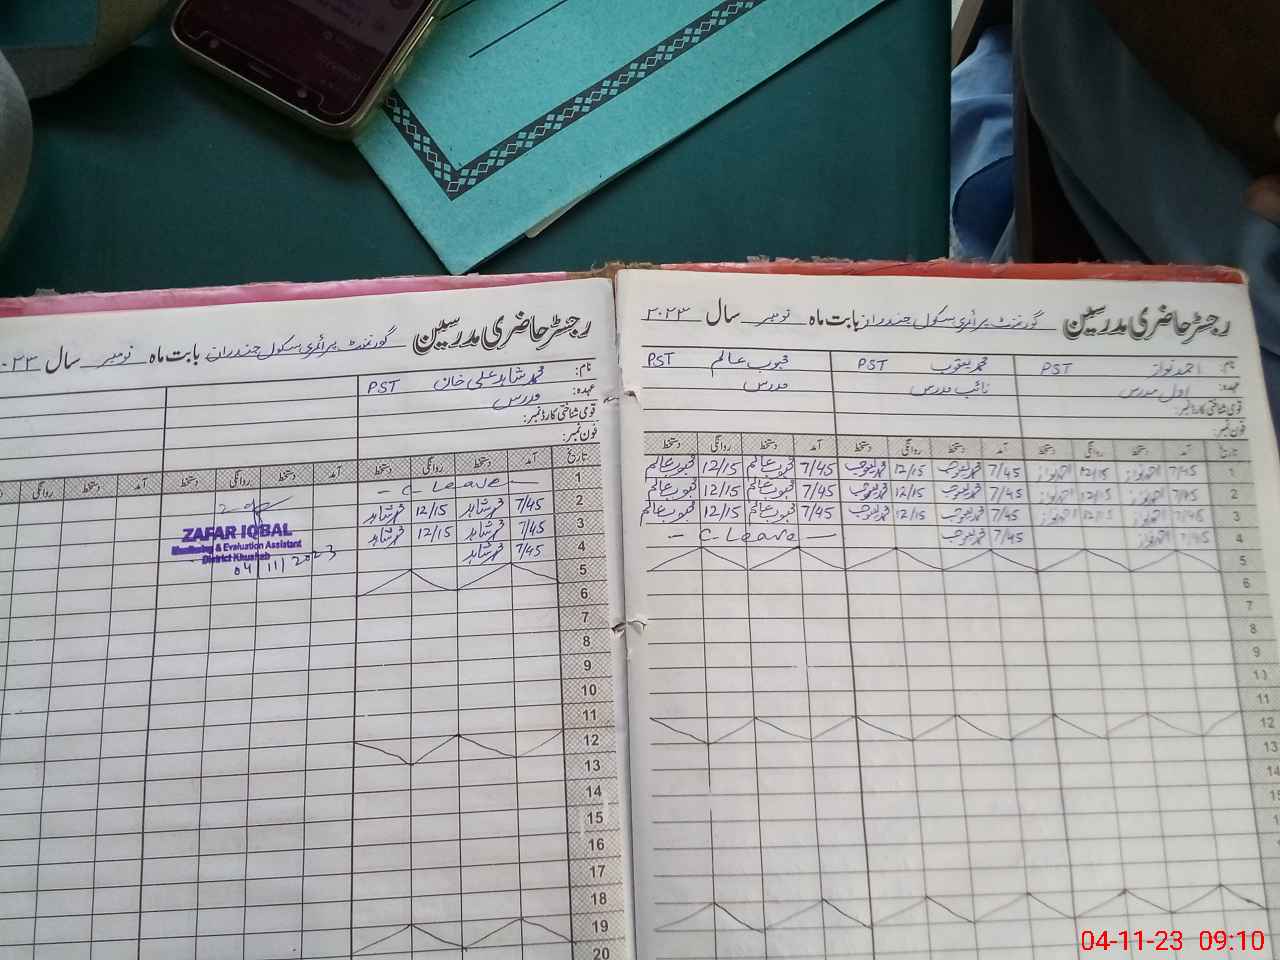 رجسٹر حاضری مدرسین گورنمنٹ پرائمری سکول جندران بابت ماہ نومبر سال ۲۰۲۳
نام: احمد نواز PST محمد یعقوب PST محبوب عالم PST
عہدہ: اول مدرس نائب مدرس مدرس
قومی شناختی کارڈ نمبر:
فون نمبر:
تاریخ آمد دستخط روانگی دستخط آمد دستخط روانگی دستخط آمد دستخط روانگی دستخط
1 7/45 احمد نواز 12/15 احمد نواز 7/45 محمد یعقوب 12/15 محمد یعقوب 7/45 محبوب عالم 12/15 محبوب عالم
2 7/45 احمد نواز 12/15 احمد نواز 7/45 محمد یعقوب 12/15 محمد یعقوب 7/45 محبوب عالم 12/15 محبوب عالم
3 7/45 احمد نواز 12/15 احمد نواز 7/45 محمد یعقوب 12/15 محمد یعقوب 7/45 محبوب عالم 12/15 محبوب عالم
4 7/45 احمد نواز 7/45 محمد یعقوب - C Leave -
5
6
7
8
9
10
11
12
13
14
رجسٹر حاضری مدرسین گورنمنٹ پرائمری سکول جندران بابت ماہ نومبر سال ۲۰۲۳
نام: محمد شاہد علی خان PST
عہدہ: مدرس
قومی شناختی کارڈ نمبر:
فون نمبر:
تاریخ آمد دستخط روانگی دستخط آمد دستخط روانگی دستخط آمد دستخط روانگی
1 - C Leave -
2 7/45 محمد شاہد 12/15 محمد شاہد
3 7/45 محمد شاہد 12/15 محمد شاہد
4 7/45 محمد شاہد
5
6
7
8
9
10
11
12
13
14
15
16
17
18
19
20
ZAFAR IQBAL
Monitoring & Evaluation Assistant
District Khushab
04/11/2023
04-11-23 09:10